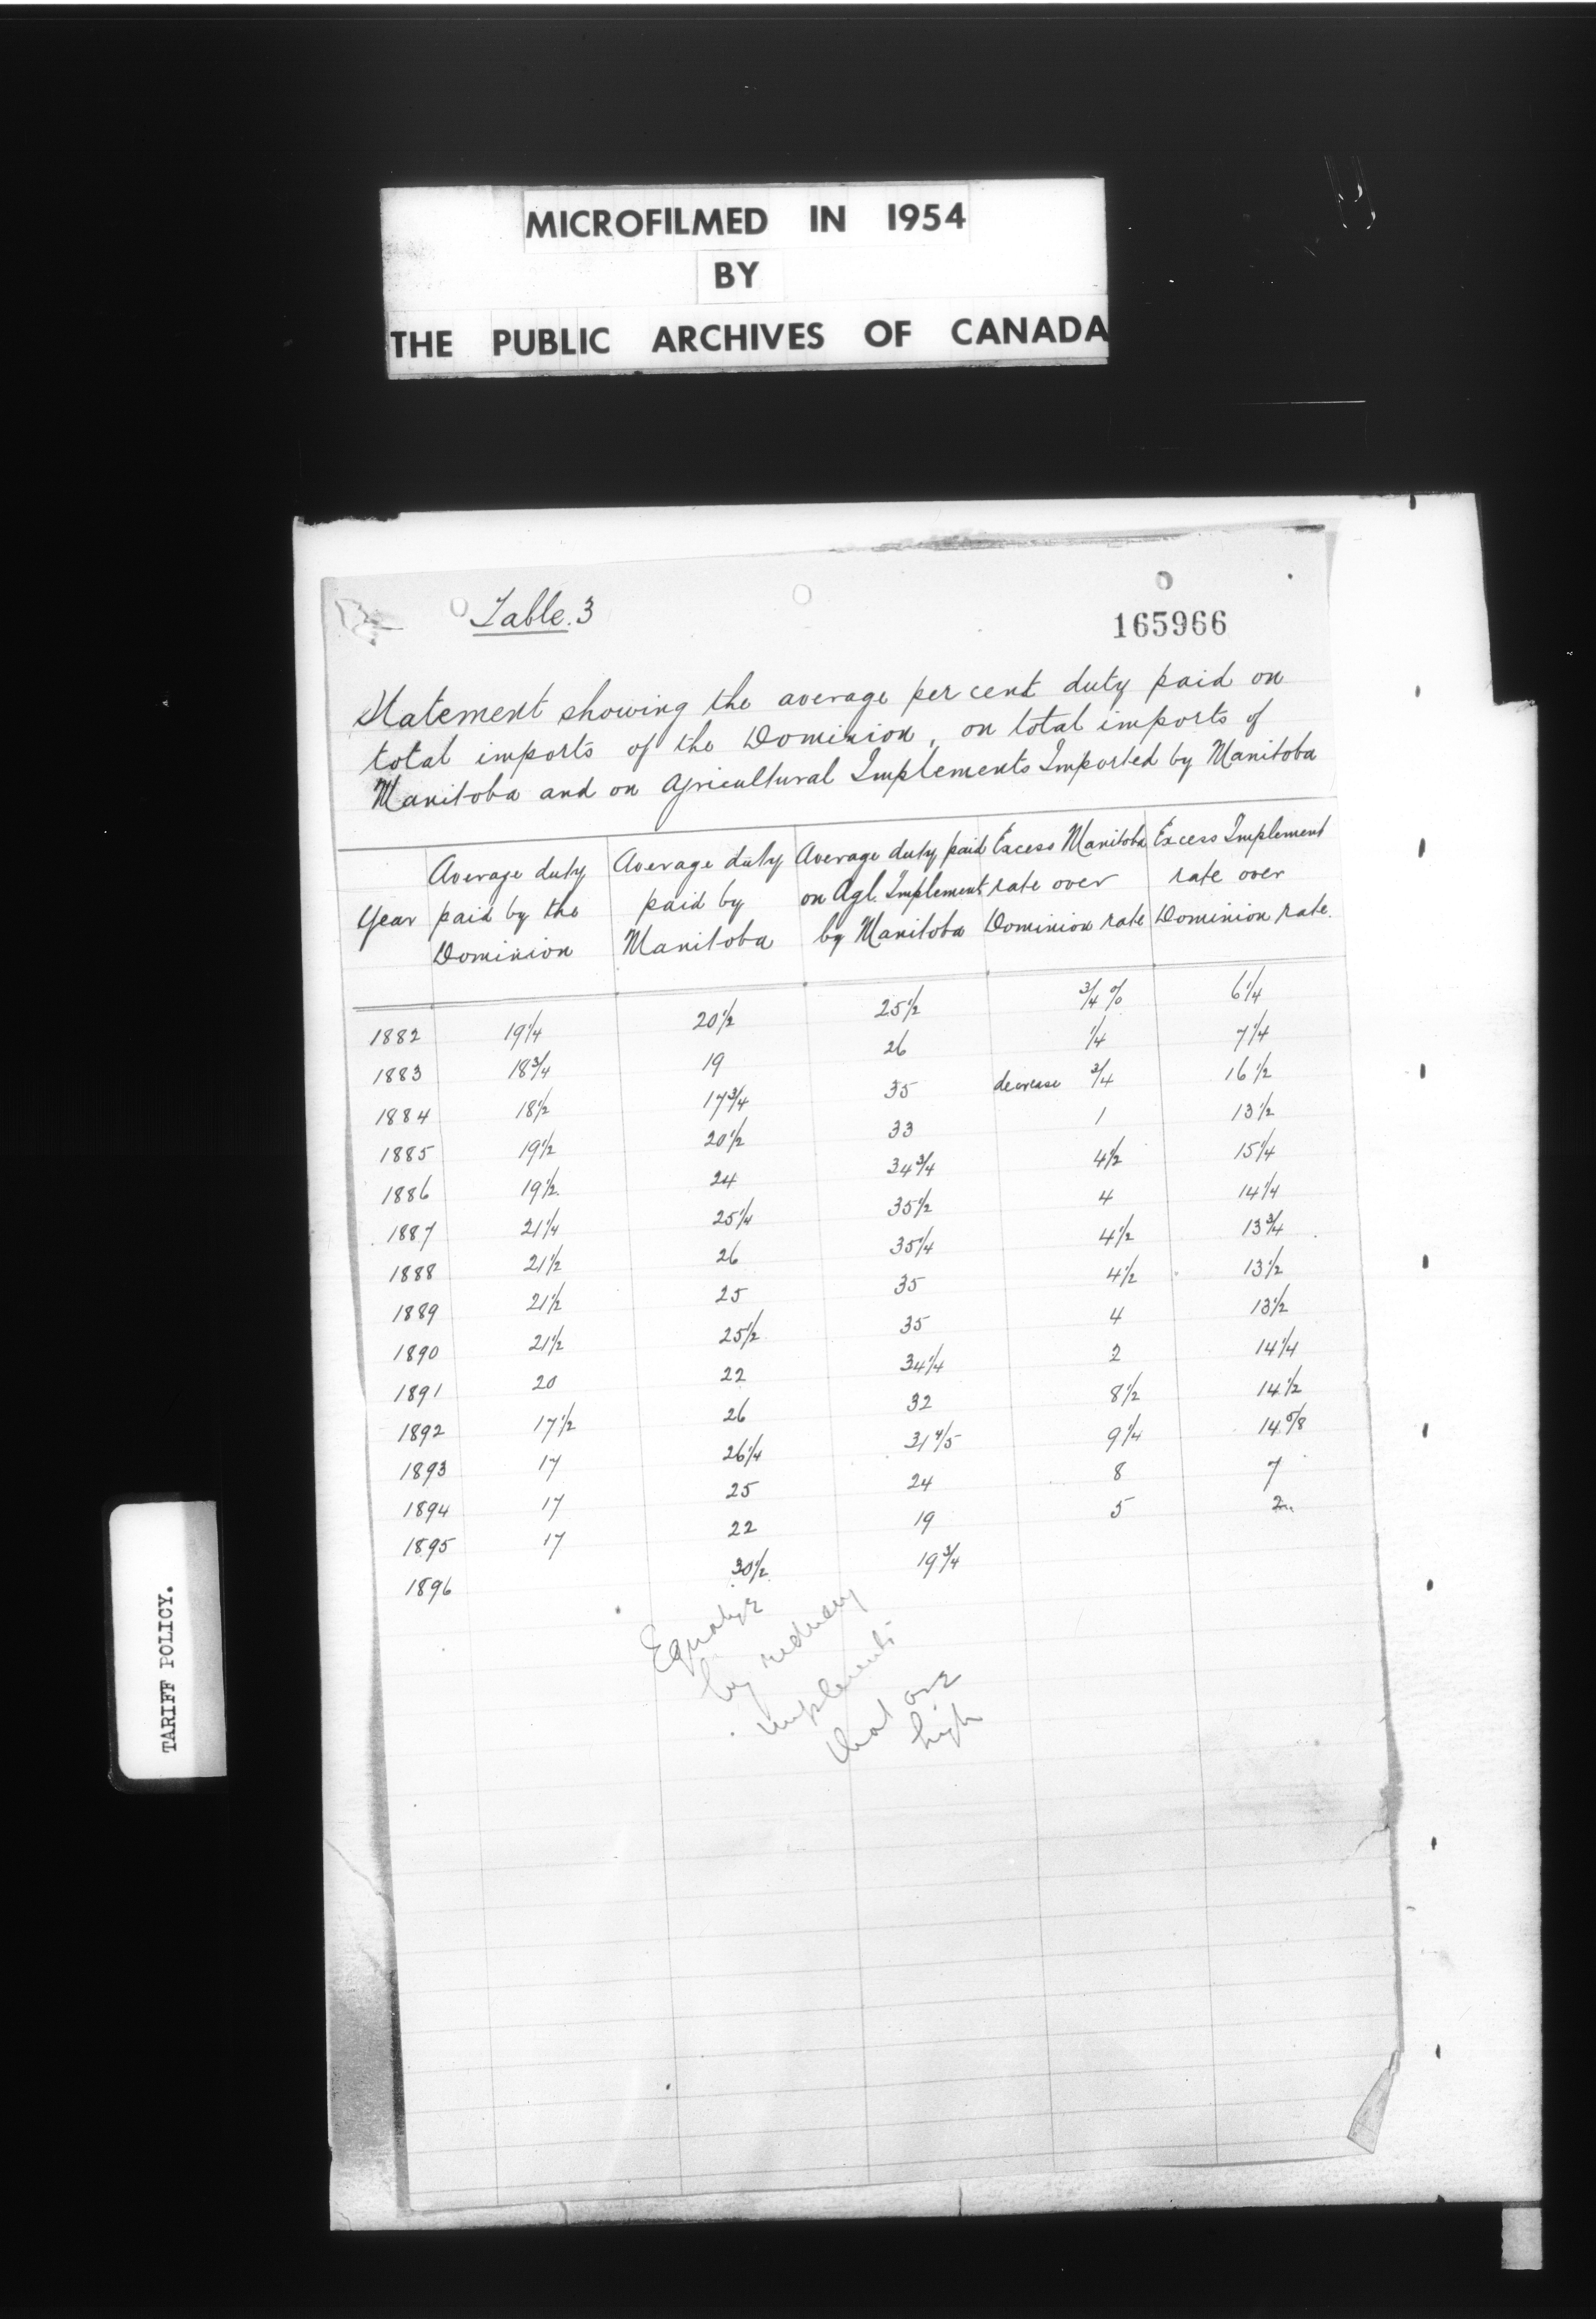 MICROFILMED IN 1954
BY
THE PUBLIC ARCHIVES OF CANADA
Table.3
165966
Statement showing the average per cent duty paid on
total imports of the Dominion, on total imports of
Manitoba and on Agricultural Implements Imported by Manitoba
Year
Average duty
paid by the
Dominion
Average duty
paid by
Manitoba
Average duty paid
on Agl. Implement
by Manitoba
Excess Manitoba
rate over
Dominion rate
Excess Implement
rate over
Dominion rate.
1882 19 1/4 20 1/2 25 1/2 3/4 % 6 1/4
1883 18 3/4 19 26 1/4 7 1/4
1884 18 1/2 17 3/4 35 decrease 3/4 16 1/2
1885 19 1/2 20 1/2 33 1 13 1/2
1886 19 1/2 24 34 3/4 4 1/2 15 1/4
1887 21 1/4 25 1/4 35 1/2 4 14 1/4
1888 21 1/2 26 35 1/4 4 1/2 13 3/4
1889 21 1/2 25 35 4 1/2 13 1/2
1890 21 1/2 25 1/2 35 4 13 1/2
1891 20 22 34 1/4 2 14 1/4
1892 17 1/2 26 32 8 1/2 14 1/2
1893 17 26 1/4 31 4/5 9 1/4 14 5/8
1894 17 25 24 8 7
1895 17 22 19 5 2
1896 30 1/2 19 3/4
Equalize
by reducing
implements
that are
high
TARIFF POLICY.